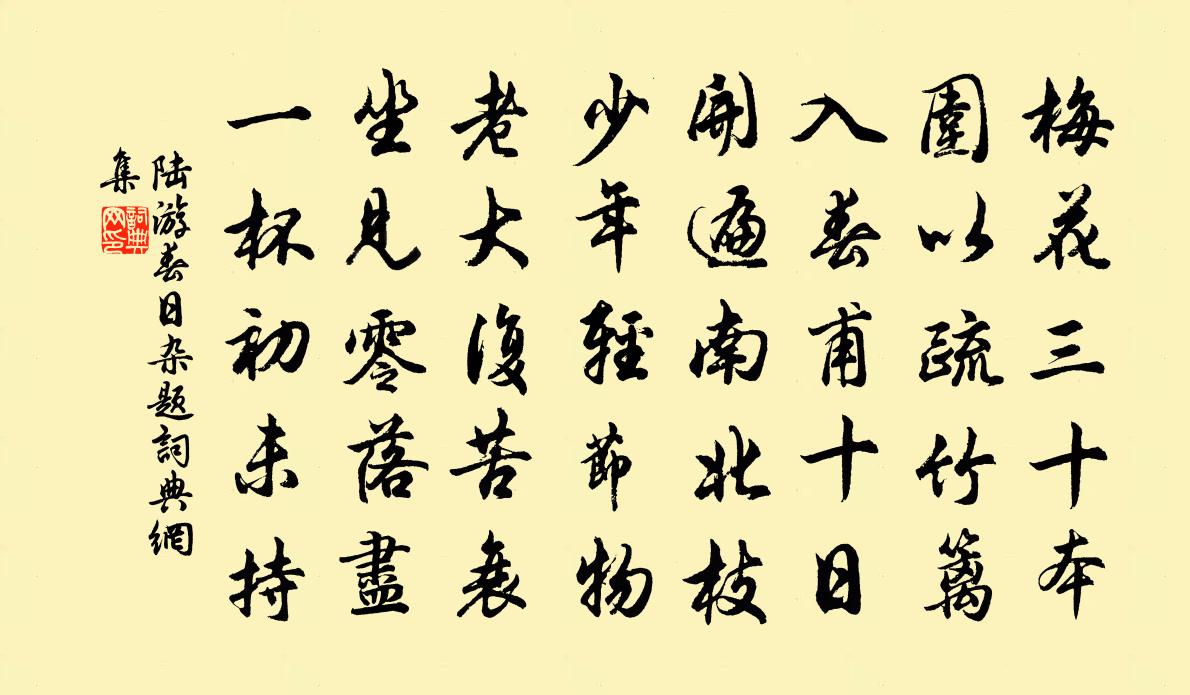 梅花三十本
圍以疏竹籬
入春甫十日
開遍南北枝
少年輕節物
老大復苦衰
坐見零落盡
一杯初未持
陸游春日杂题詞典網
集
詞典
网印